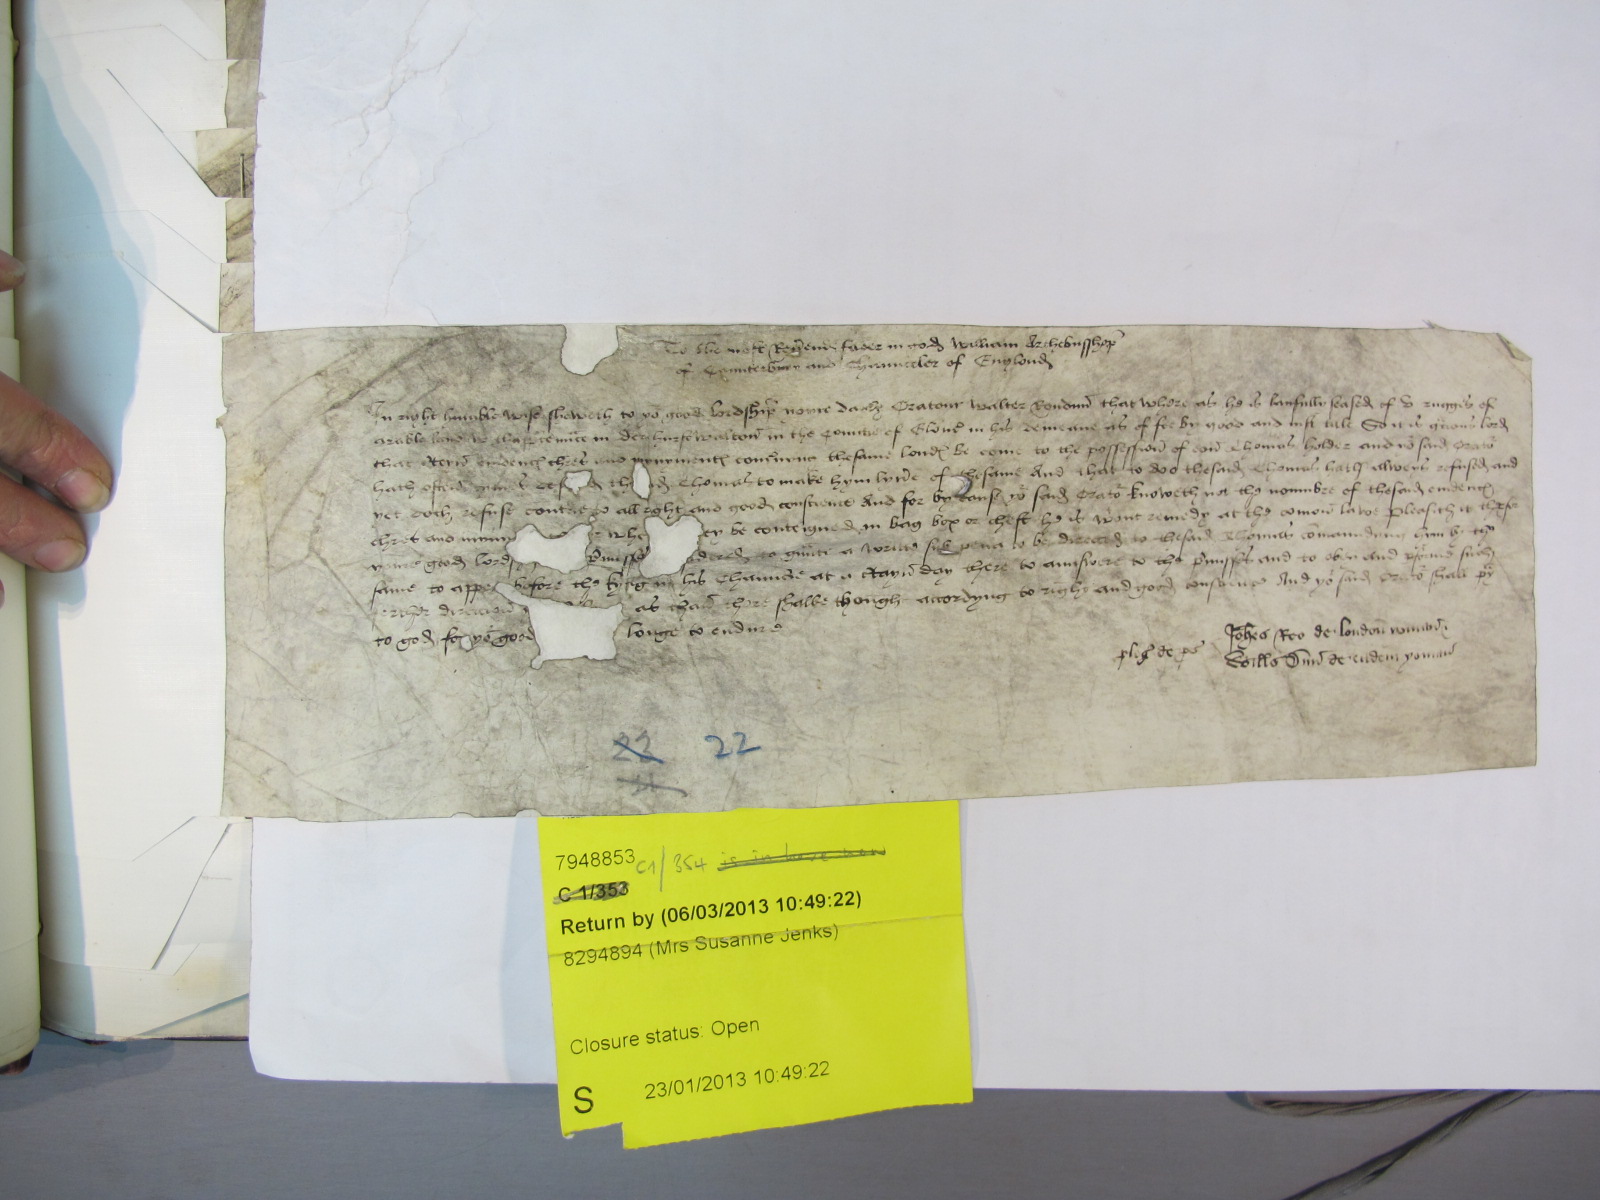 To the most Reverend fader in god William Archebusshop
of Caunterbury and Chaunceler of Englond
In right humble wise sheweth to yor good lordship youre dayly Oratour Walter that where as he is lawfully seased of v ruggis of
arable land in in the Countie of Glouc in his demeane as of fee by good and just title So it is gracious lord
that evidenc chres and munimentes concernyng thesame lond be come to the possession of oon Thomas holder and yor said Orator
hath thesaid Thomas to make hym lyvere of thesame And that to doo thesaid Thomas hath alweis refused and
yet doth refuse contrary to all right and good conscience And for by cause yor said Orator knoweth not the nombre of thesaid evidenc
chres and munym whe ey be conteigned in bag box or chest he is wtout remedy at the comon lawe Pleasith it therfor
youre good lords Premiss dered to graunte a writte sub pena to be directed to thesaid Thomas comaundyng hym by the
same to appe before the kyng in his Chauncerie at a certayn day there to answere to the premisses and to obey and performe such
further direccion as than there shalbe though accordyng to right and good conscience And yor said Orator shall pray
to god for yor good longe to endure
pleg de pros Johes Reo de london
Wills de eadem yoman
22 22
7948853 C1/354 is in
C 1/353
Return by (06/03/2013 10:49:22)
8294894 (Mrs Susanne Jenks)
Closure status: Open
S 23/01/2013 10:49:22